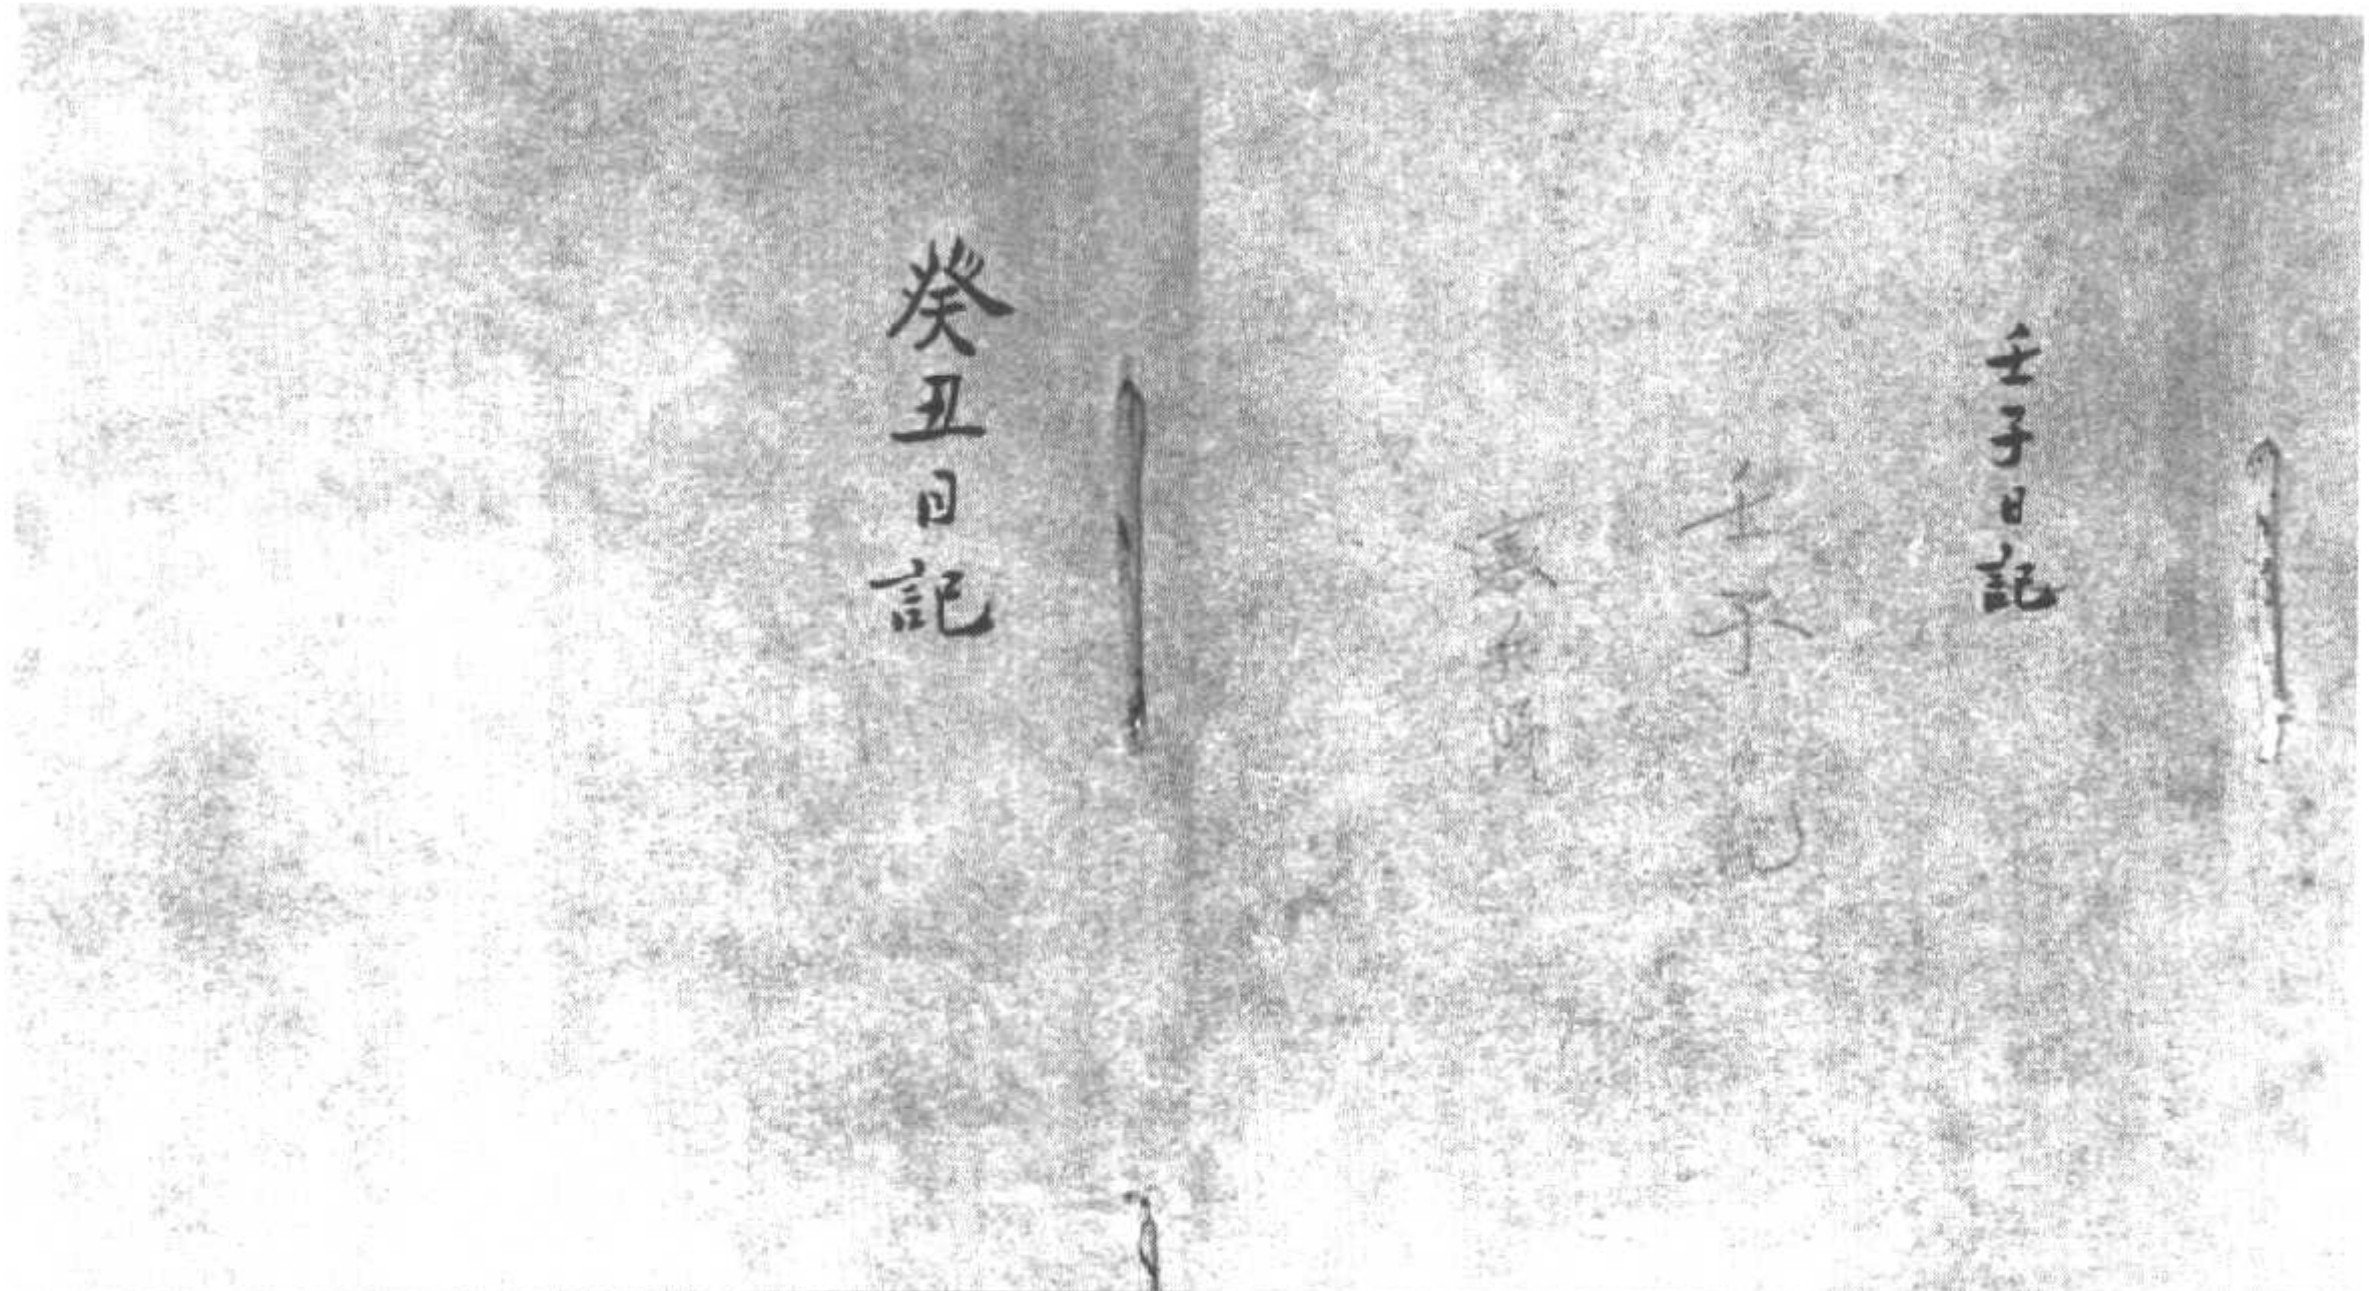 壬子日記
壬子日記
癸丑日記